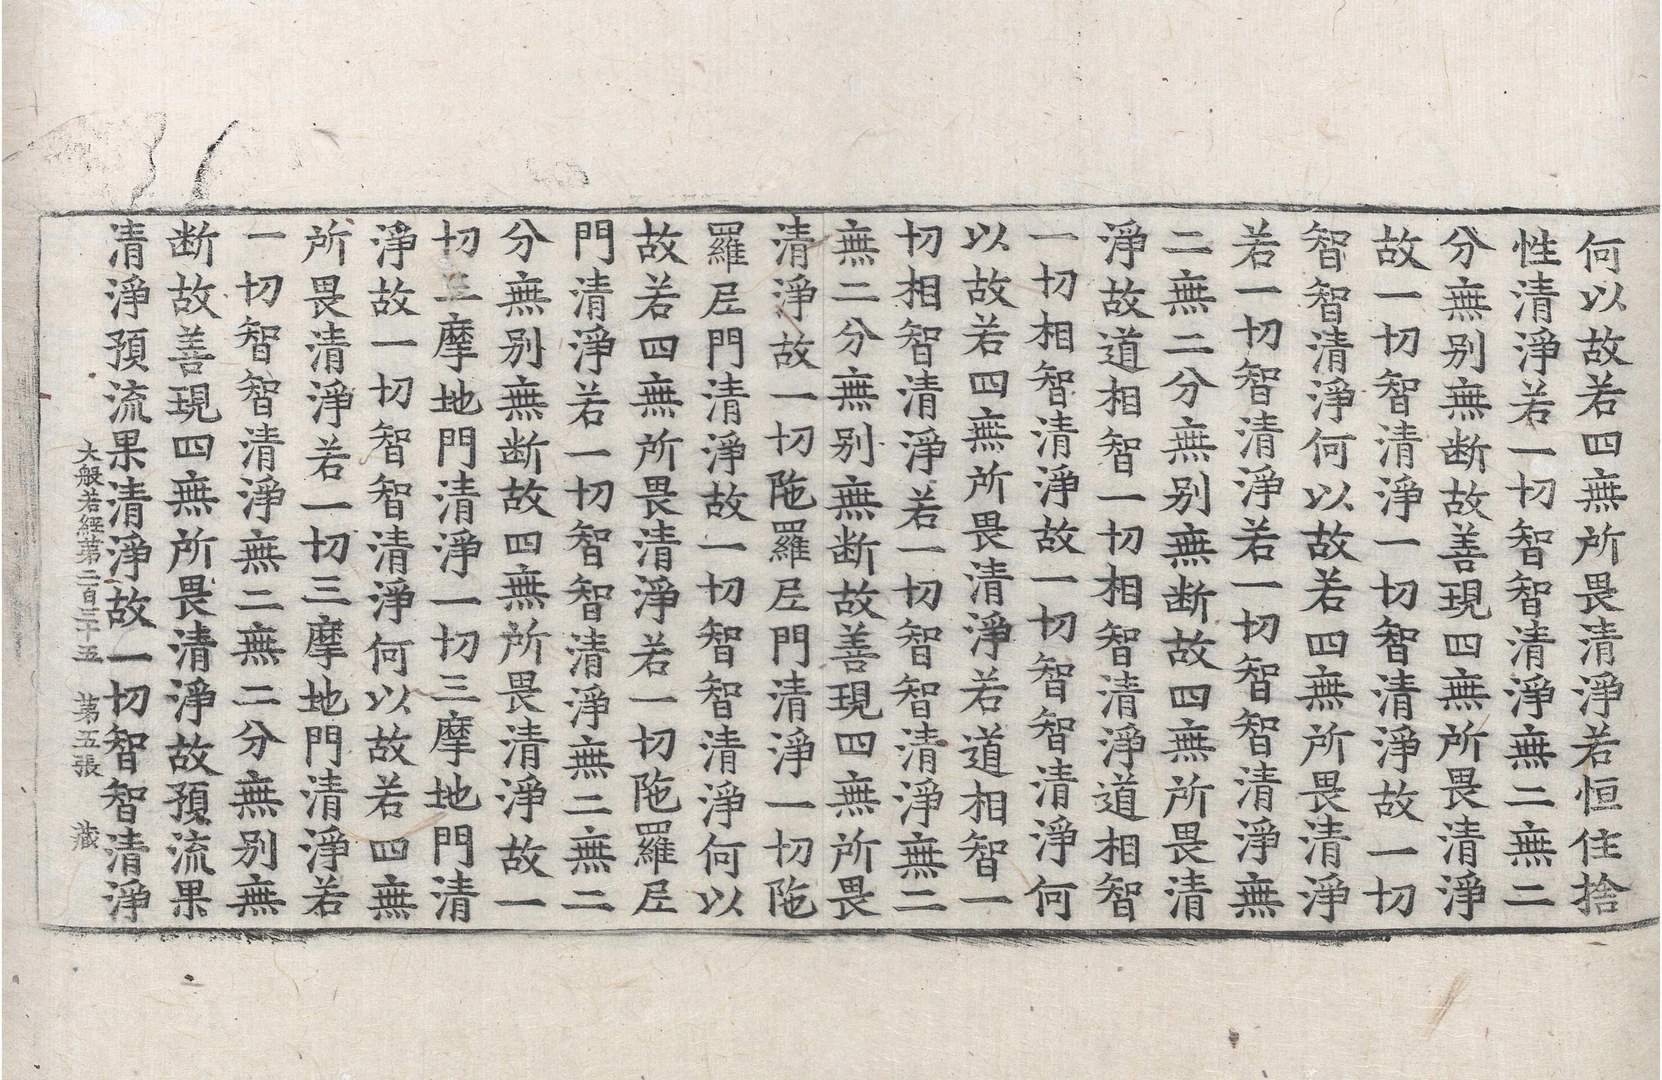 何以故若四無所畏清淨若恒住捨
性清淨若一切智智清淨無二無二
分無别無断故善現四無所畏清淨
故一切智清淨一切智清淨故一切
智智清淨何以故若四無所畏清淨
若一切智清淨若一切智智清淨無
二無二分無别無断故四無所畏清
淨故道相智一切相智清淨道相智
一切相智清淨故一切智智清淨何
以故若四無所畏清淨若道相智一
切相智清淨若一切智智清淨無二
無二分無别無断故善現四無所畏
清淨故一切陁羅尼門清淨一切陁
羅尼門清淨故一切智智清淨何以
故若四無所畏清淨若一切陁羅尼
門清淨若一切智智清淨無二無二
分無别無断故四無所畏清淨故一
切三摩地門清淨一切三摩地門清
淨故一切智智清淨何以故若四無
所畏清淨若一切三摩地門清淨若
一切智智清淨無二無二分無别無
断故善現四無所畏清淨故預流果
清淨預流果清淨故一切智智清淨
大般若経第二百三十五 第五張 藏